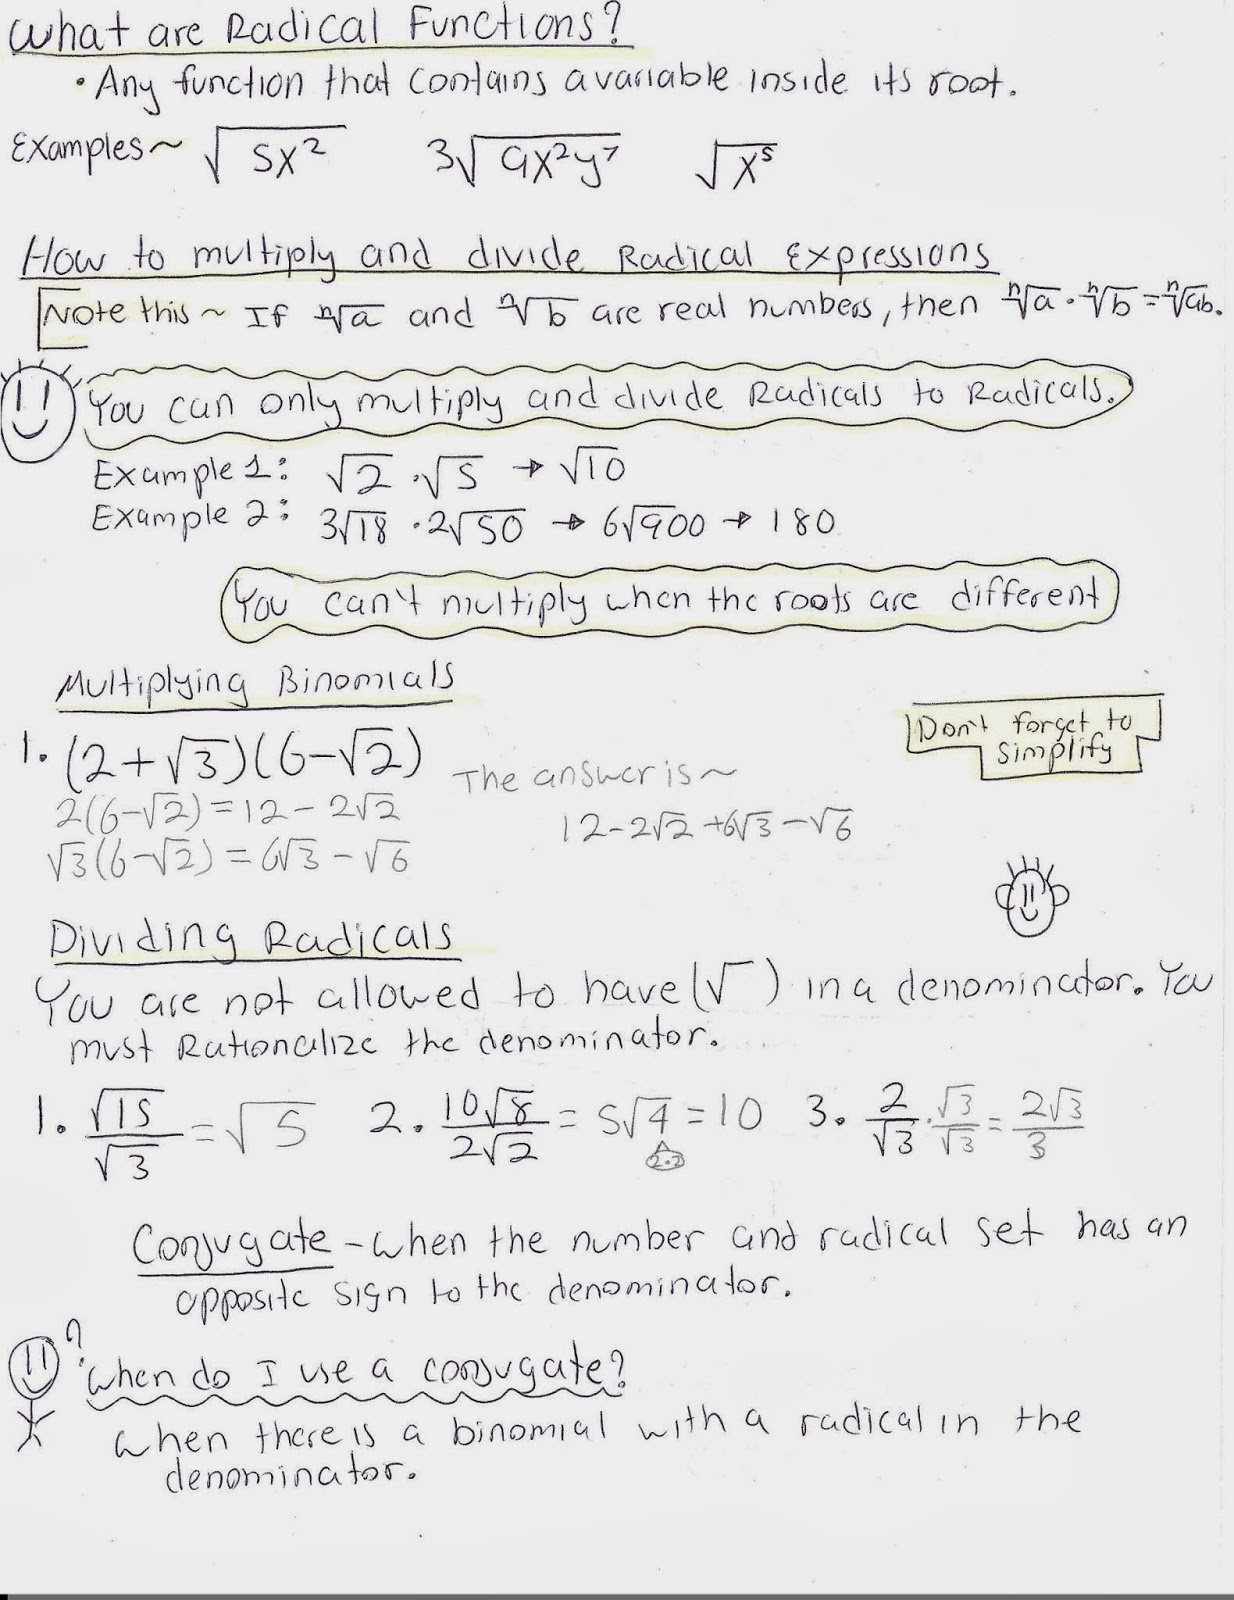 What are Radical Functions?
• Any function that contains a variable inside its root.
Examples~ √5x² 3√9x²y⁷ √x⁵
How to multiply and divide Radical Expressions
Note this ~ If ⁿ√a and ⁿ√b are real numbers, then ⁿ√a · ⁿ√b = ⁿ√ab.
You can only multiply and divide Radicals to Radicals.
Example 1: √2 · √5 → √10
Example 2: 3√18 · 2√50 → 6√900 → 180
You can't multiply when the roots are different
Multiplying Binomials
Don't forget to
simplify
1. (2+√3)(6-√2)
The answer is ~
2(6-√2) = 12 - 2√2
12-2√2 +6√3 -√6
√3(6-√2) = 6√3 - √6
Dividing Radicals
You are not allowed to have (√ ) in a denominator. You
must Rationalize the denominator.
1. √15/√3 = √5 2. 10√8/2√2 = 5√4 = 10 3. 2/√3 · √3/√3 = 2√3/3
2·2
Conjugate - when the number and radical set has an
opposite sign to the denominator.
? When do I use a conjugate?
when there is a binomial with a radical in the
denominator.